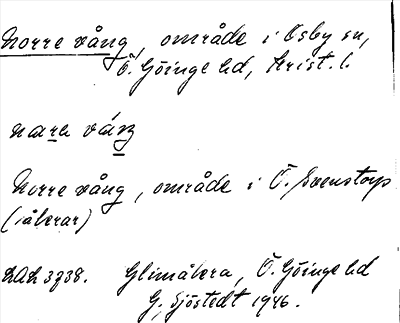 Norre vång, område i Osby sn,
Ö. Göinge hd, Krist. l.
nare váng
Norre vång, område i Ö. Svenstorp
(i åkrar)
LAL 3738. Glimåkra, Ö. Göinge hd
G. Sjöstedt 1946.